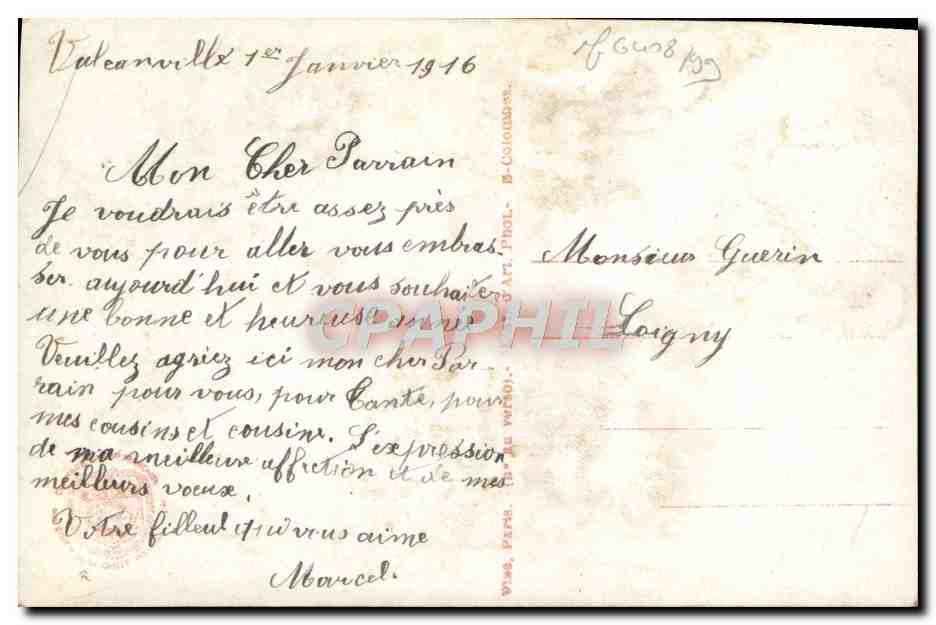 Valcanville 1er Janvier 1916
Mon Cher Parrain
Je voudrais être assez près
de vous pour aller vous embras-
ser aujourd'hui et vous souhaiter
une bonne et heureuse année
Veuillez agriez ici mon cher Par-
rain pour vous, pour Tante, pour
mes cousins et cousine. L'expression
de ma meilleure affection et de mes
meilleurs voeux.
Votre filleul qui vous aime
Marcel.
Monsieur Guerin
Loigny
D'Art. Phot.- B-Colombes.
Paris. au verso).-
CPAPHIL